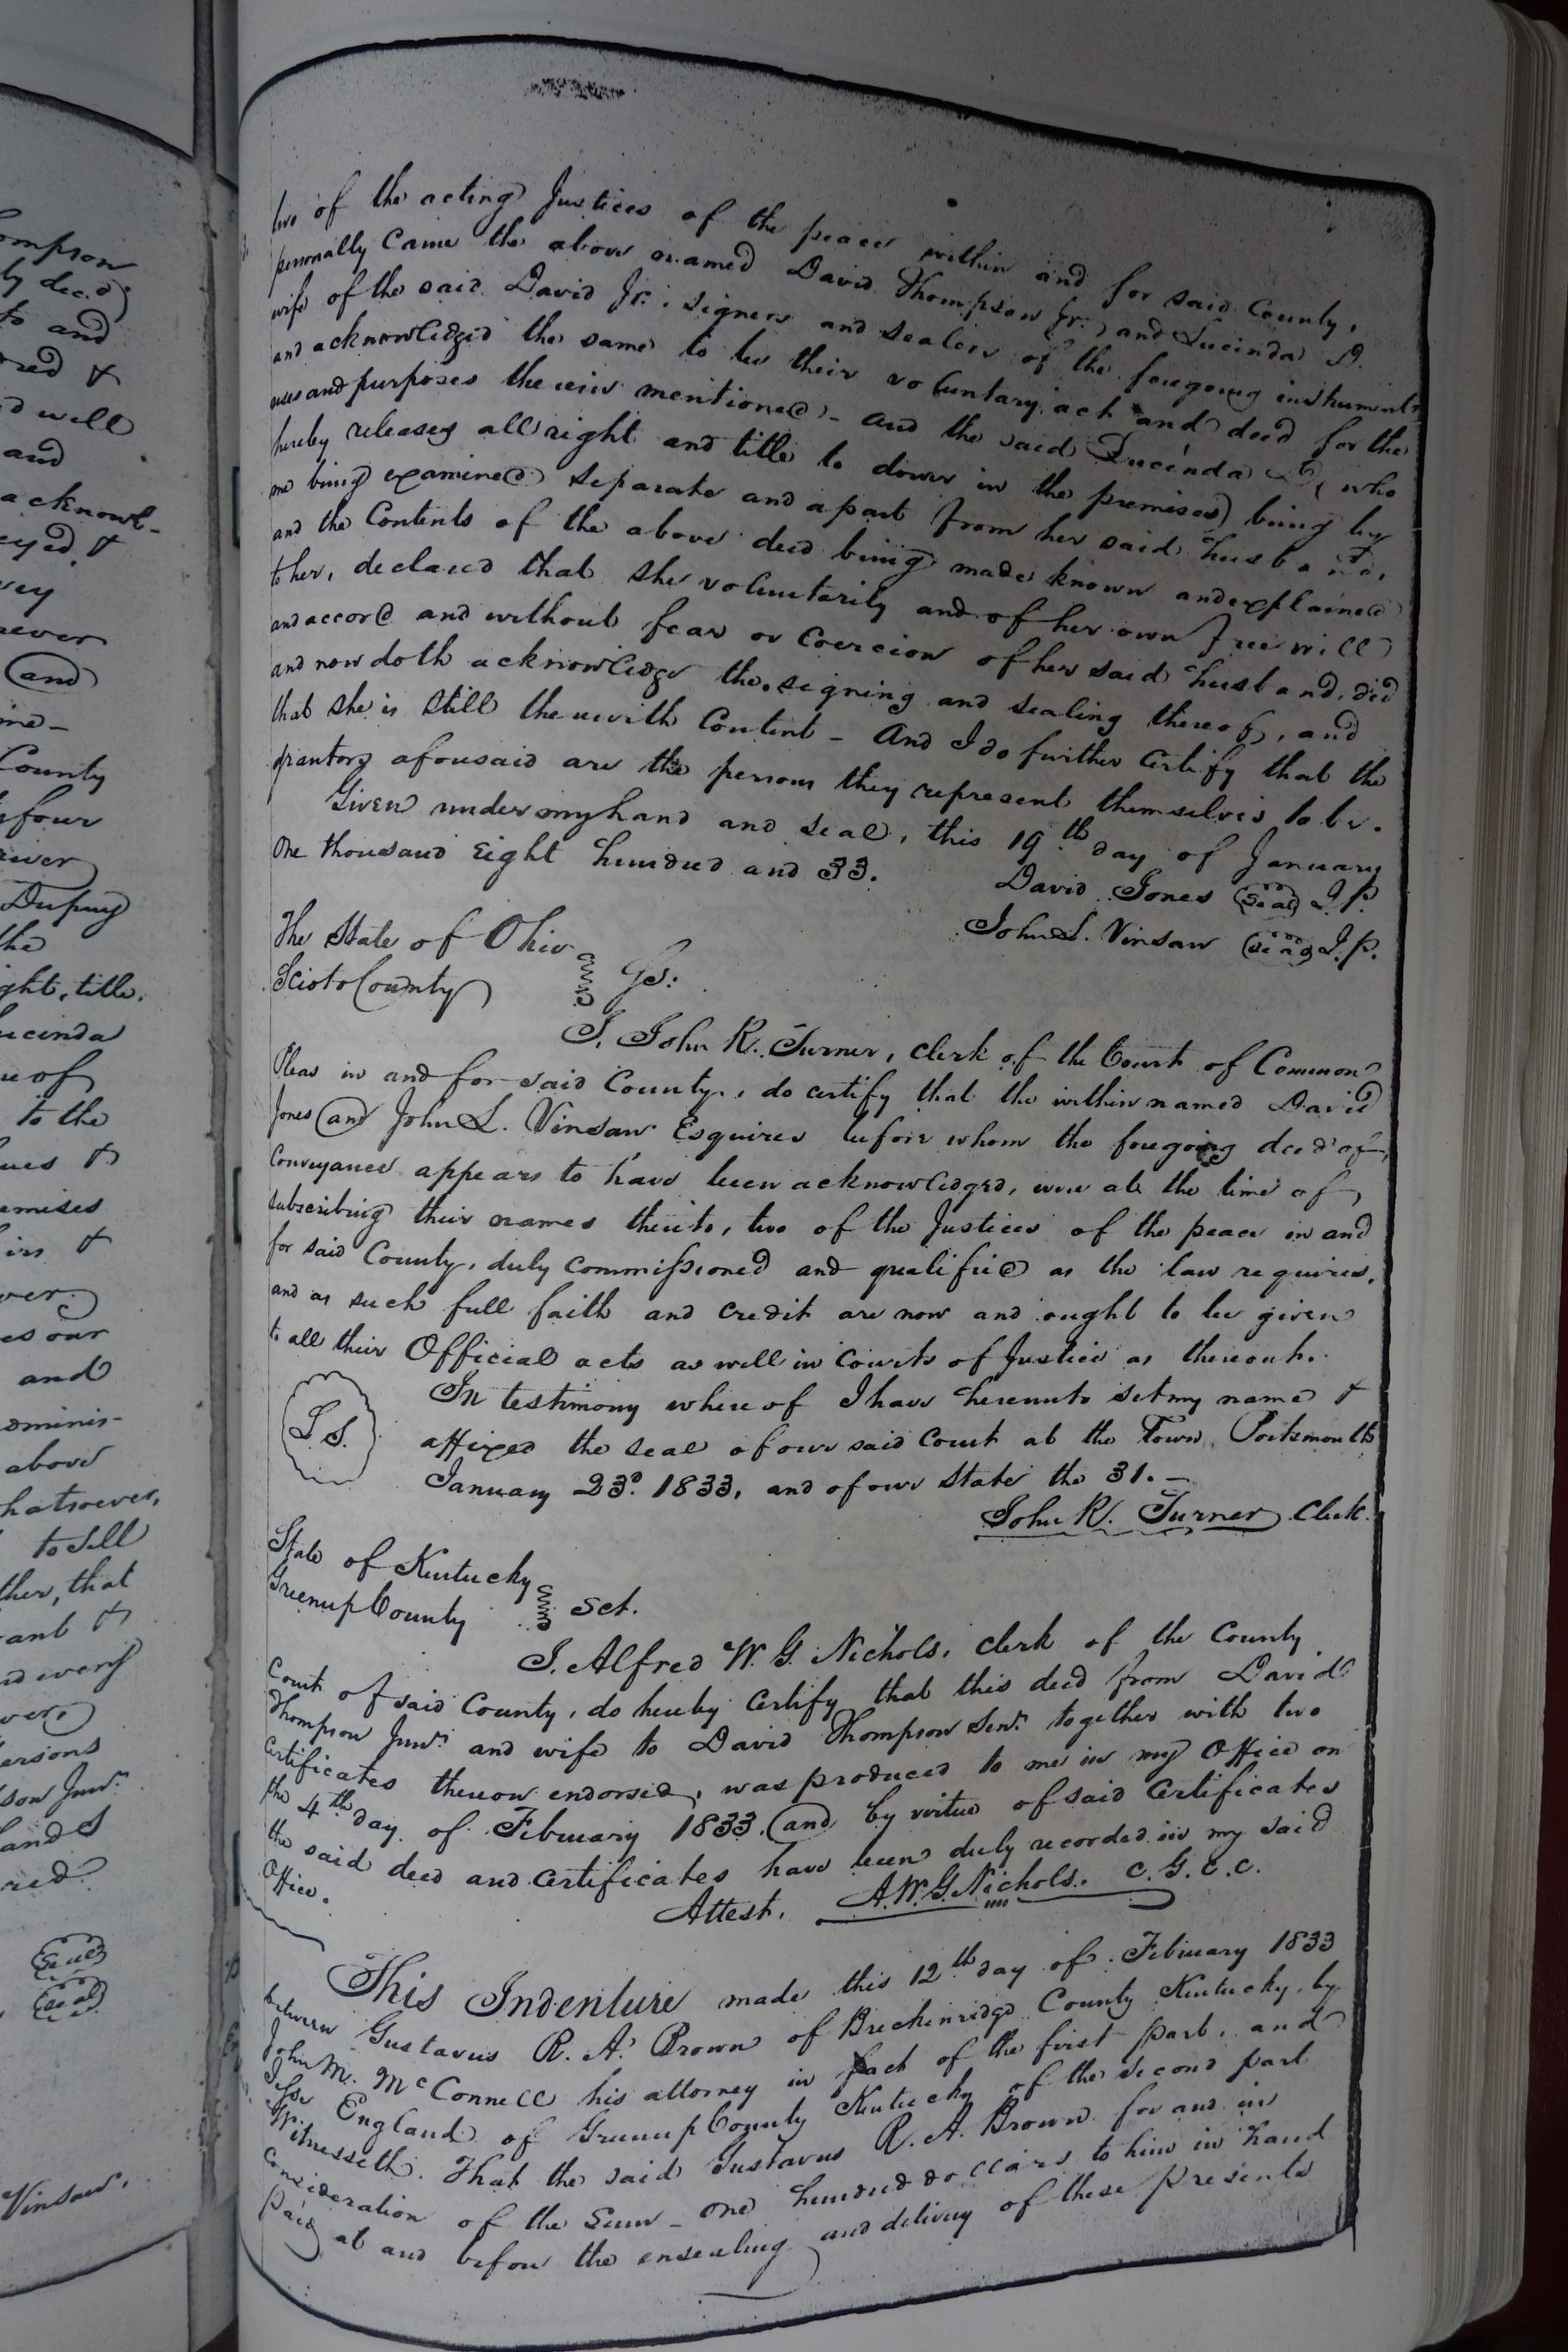 ompson
ly dec.d)
to and
red &
d well
and
acknowl-
eyed, &
vey
ever
and
me-
County
four
iver
Dupuy
the
ght, title,
ucinda
u of
to the
ues &
emises
irs &
ver.
es our
and
dminis-
above
hatsoever,
to sell
ther, that
ant &
d every
ver,
ersons
son Junr.
hand &
red.
Seal
Seal
Vinsaw.
two of the acting Justices of the peace within and for said County,
personally came the above named David Thompson Jr. and Lucinda D.
wife of the said David Jr. signers and sealers of the foregoing instrument
and acknowledged the same to be their voluntary act and deed for the
uses and purposes therein mentioned - and the said Lucinda D, (who
hereby releases all right and title to dower in the premises) being by
me being examined separate and apart from her said husband,
and the Contents of the above deed being made known and explained
to her, declared that she voluntarily and of her own free will
and accord and without fear or Coercion of her said husband, did
and now doth acknowledge the signing and sealing thereof, and
that she is still therewith Content - And I do further Certify that the
grantors aforesaid are the persons they represent themselves to be.
Given under my hand and seal, this 19th day of January
One thousand Eight hundred and 33.
David Jones (Seal) J.P.
John L. Vinsaw (Seal) J.P.
The State of Ohio
Scioto County
I, John R. Turner, clerk of the Court of Common
Pleas in and for said County, do certify that the within named David
Jones and John L. Vinsaw Esquires before whom the foregoing deed of
Conveyance appears to have been acknowledged, were at the time of
subscribing their names thereto, two of the Justices of the peace in and
for said County, duly commissioned and qualified as the law requires,
and as such full faith and credit are now and ought to be given
to all their Official acts as well in Courts of Justice as thereout.
L S.
In testimony whereof I have hereunto set my name &
affixed the seal of our said Court at the Town Portsmouth
January 23d. 1833, and of our State the 31. -
John R. Turner Clerk.
State of Kentucky
Greenup County Sct.
I, Alfred W. G. Nichols, Clerk of the County
Court of said County, do hereby Certify that this deed from David
Thompson Junr. and wife to David Thompson Senr. together with two
Certificates thereon endorsed, was produced to me in my Office on
the 4th day of February 1833, and by virtue of said Certificates
the said deed and Certificates have been duly recorded in my said
Office.
Attest, A. W. G. Nichols. C. G. C. C.
This Indenture made this 12th day of February 1833
between Gustavus R. A. Brown of Breckinridge County Kentucky, by
John M. McConnell his attorney in fact of the first part, and
Jesse England of Greenup County Kentucky of the second part
Witnesseth. That the said Gustavus R. A. Brown for and in
Consideration of the Sum - One hundred dollars to him in hand
paid at and before the ensealing and delivery of these presents